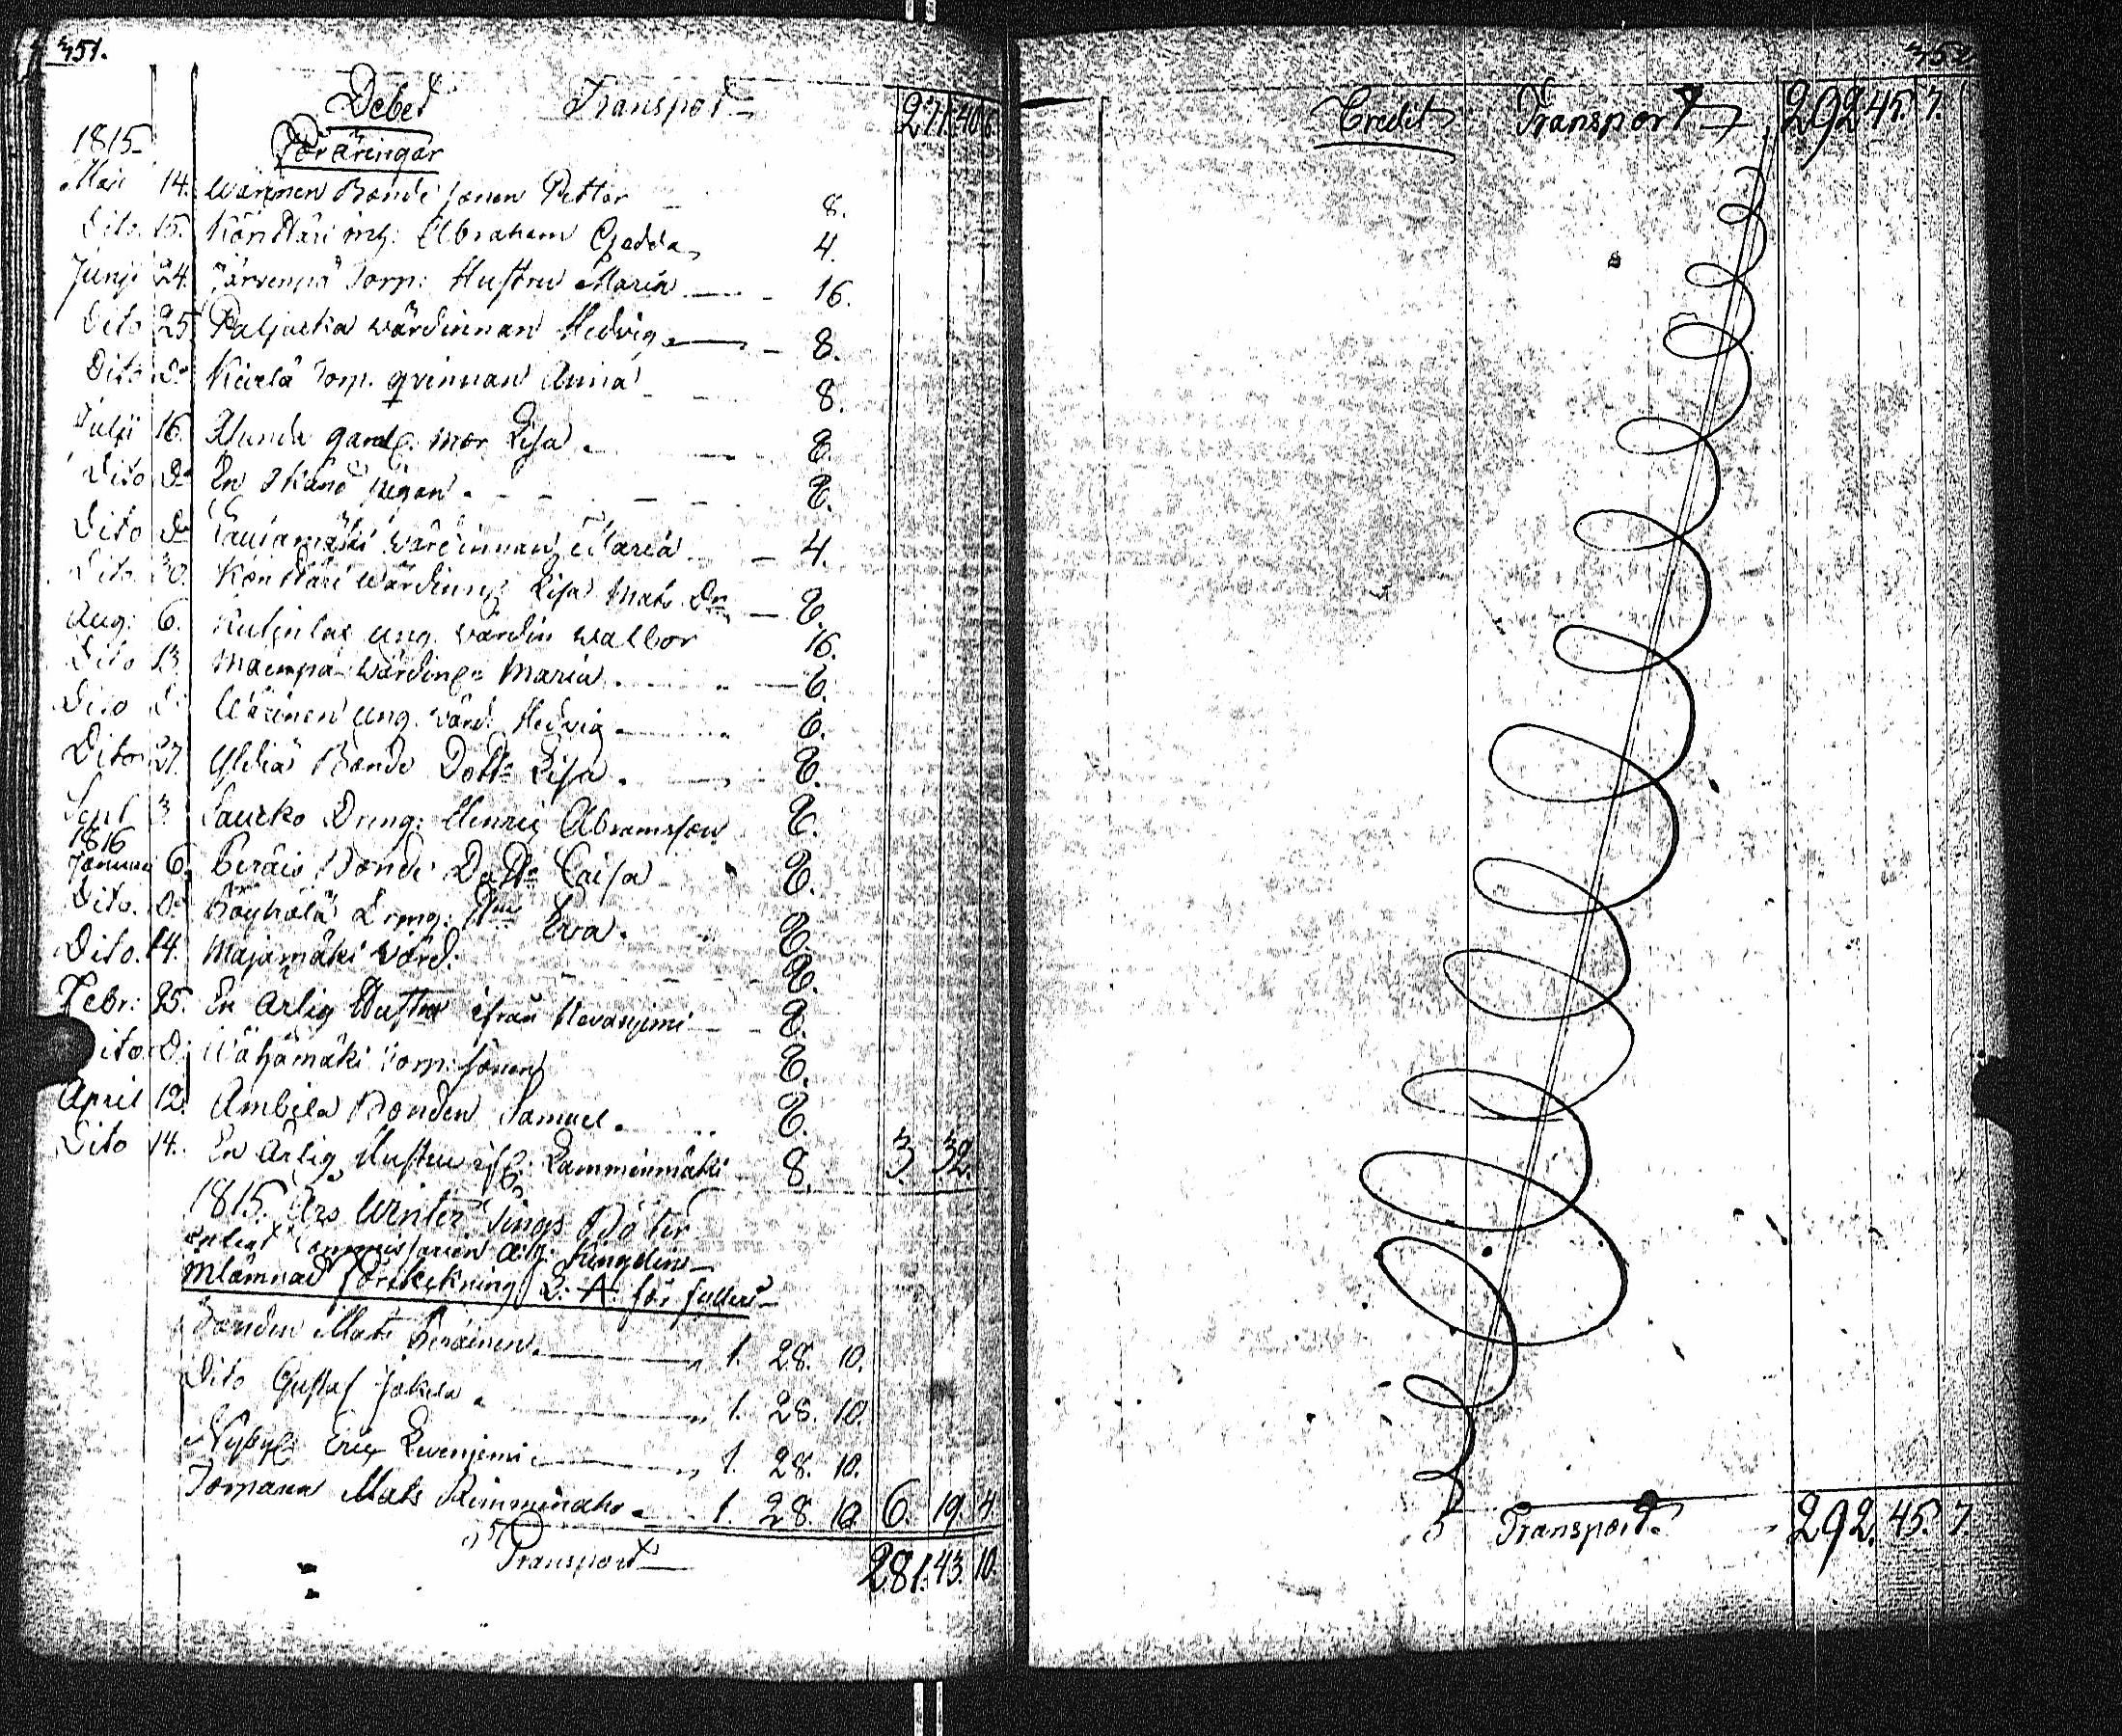 351.
Debet Transport 271. 40. 6.
1815. Föräringar
Maji 14. Wäninen Bonde sonen Petter 8.
Dito. 15. Könttäri inh: Abraham 4.
Junji 24. Järvenpä Torp: Hustru Maria 16.
Dito 25. Paljacka Värdinnan Hedvig 8.
Dito do Torp. qvinnan Anna 8.
Julji 16. gaml. mor Lisa 8.
Dito Do En okänd pigan 8.
Dito Do Värdinnan Maria 4.
Dito. 30. Könttäri Wärdinn: Lisa Mats Dr 8.
Aug: 6. ung. värdin Walbor 16.
Dito 13. Maenpä Wärdin: Maria 8.
Dito D: Wäninen ung. värd. Hedvig 8.
Dito 27. Bonde Dottr Lisa 8.
Sept 3. Saucko Dreng: Henric Abramsson 8.
1816
Januari 6. Peräis Bonde Dottr Caisa 8.
Dito. Do Köyhälä Dreng: Hus Ewa. 8.
Dito. 14. Majamäki Värd: 8.
Febr: 25. En ärlig Hustru ifrån Nevanjemi 8.
Dito D: Wähämäki Torp: sonen 8.
April 12. Ambila Bonden Samuel. 8.
Dito 14. En Ärlig Hustru if: Lamminmäki 8. 3. 32.
1815. Års Winter Tings Böter
enligt Commissarien
inlämnad förtekning L: A. för fylleri
Bonden Mats Peräinen 1. 28. 10.
Dito Gustaf Jokela 1. 28. 10.
Nybyg: Eric Levenjemi 1. 28. 10.
Torparen Mats Rimminaho 1. 28. 10. 6. 19. 4.
Transport 281. 43. 10.
352
Credit Transport 292. 45. 7.
Transport. 292. 45. 7.